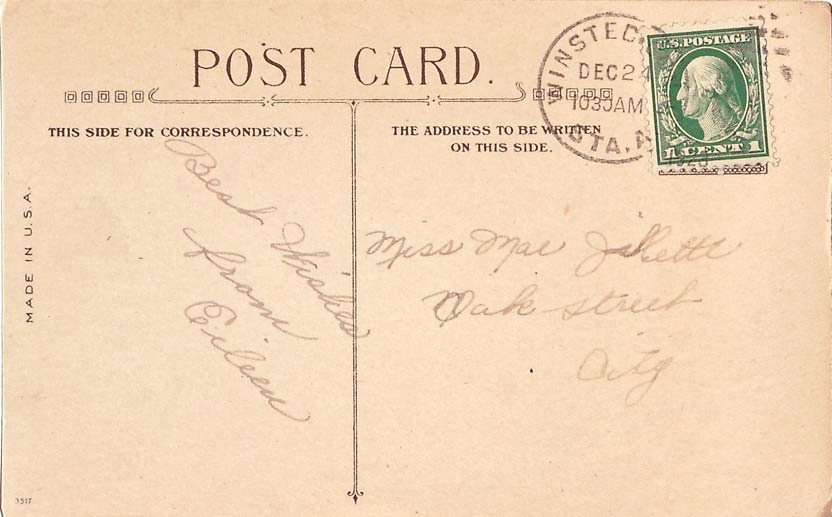 POST CARD.
THIS SIDE FOR CORRESPONDENCE.
THE ADDRESS TO BE WRITTEN
ON THIS SIDE.
WINSTED
DEC 24
1030AM
STA. A
U.S. POSTAGE
1 CENT 1
MADE IN U.S.A.
Best Wishes
from
Eileen
Miss Mae
Oak Street
City
1517